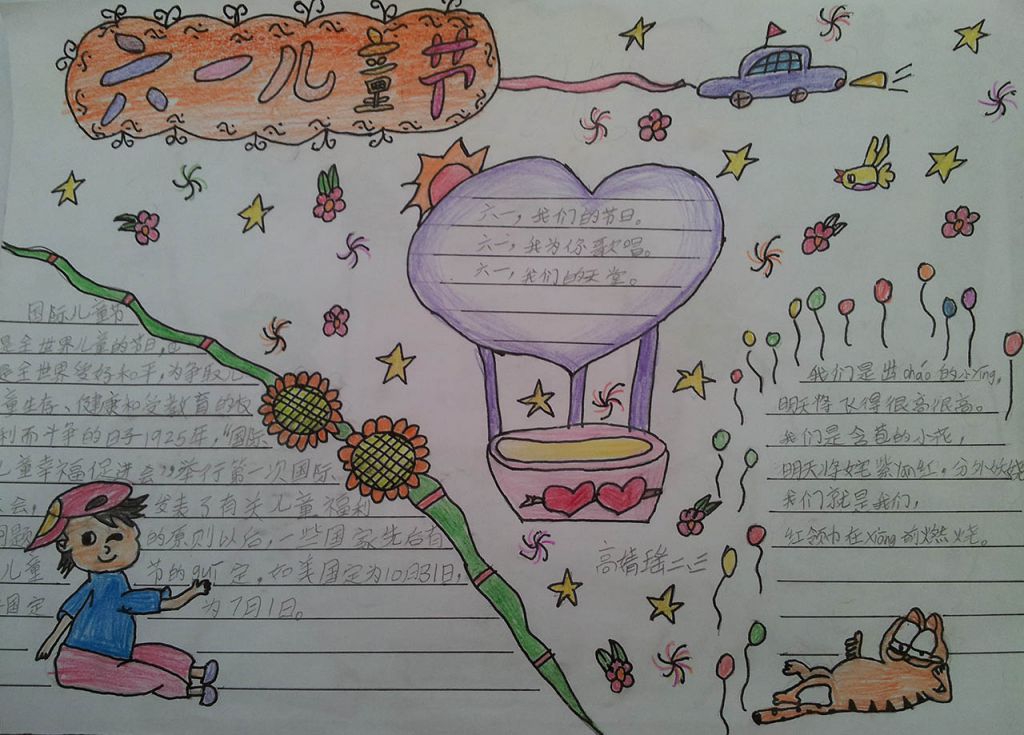 六一儿童节
六一，我们的节日。
六一，我为你歌唱。
六一，我们的天堂。
国际儿童节
是全世界儿童的节日，也
是全世界爱好和平，为争取儿
童生存、健康和受教育的权
利而斗争的日子1925年，“国际
儿童幸福促进会”举行第一次国际
大会，发表了有关儿童福利
问题的原则以后，一些国家先后有
儿童节的guī定，如美国定为10月31日，
国定为7月1日。
我们是出cháo的小yīng，
明天将飞得很高很高。
我们是含苞的小花，
明天将姹紫嫣红，分外妖娆
我们就是我们，
红领巾在xiōng前燃烧。
高情瑶二三